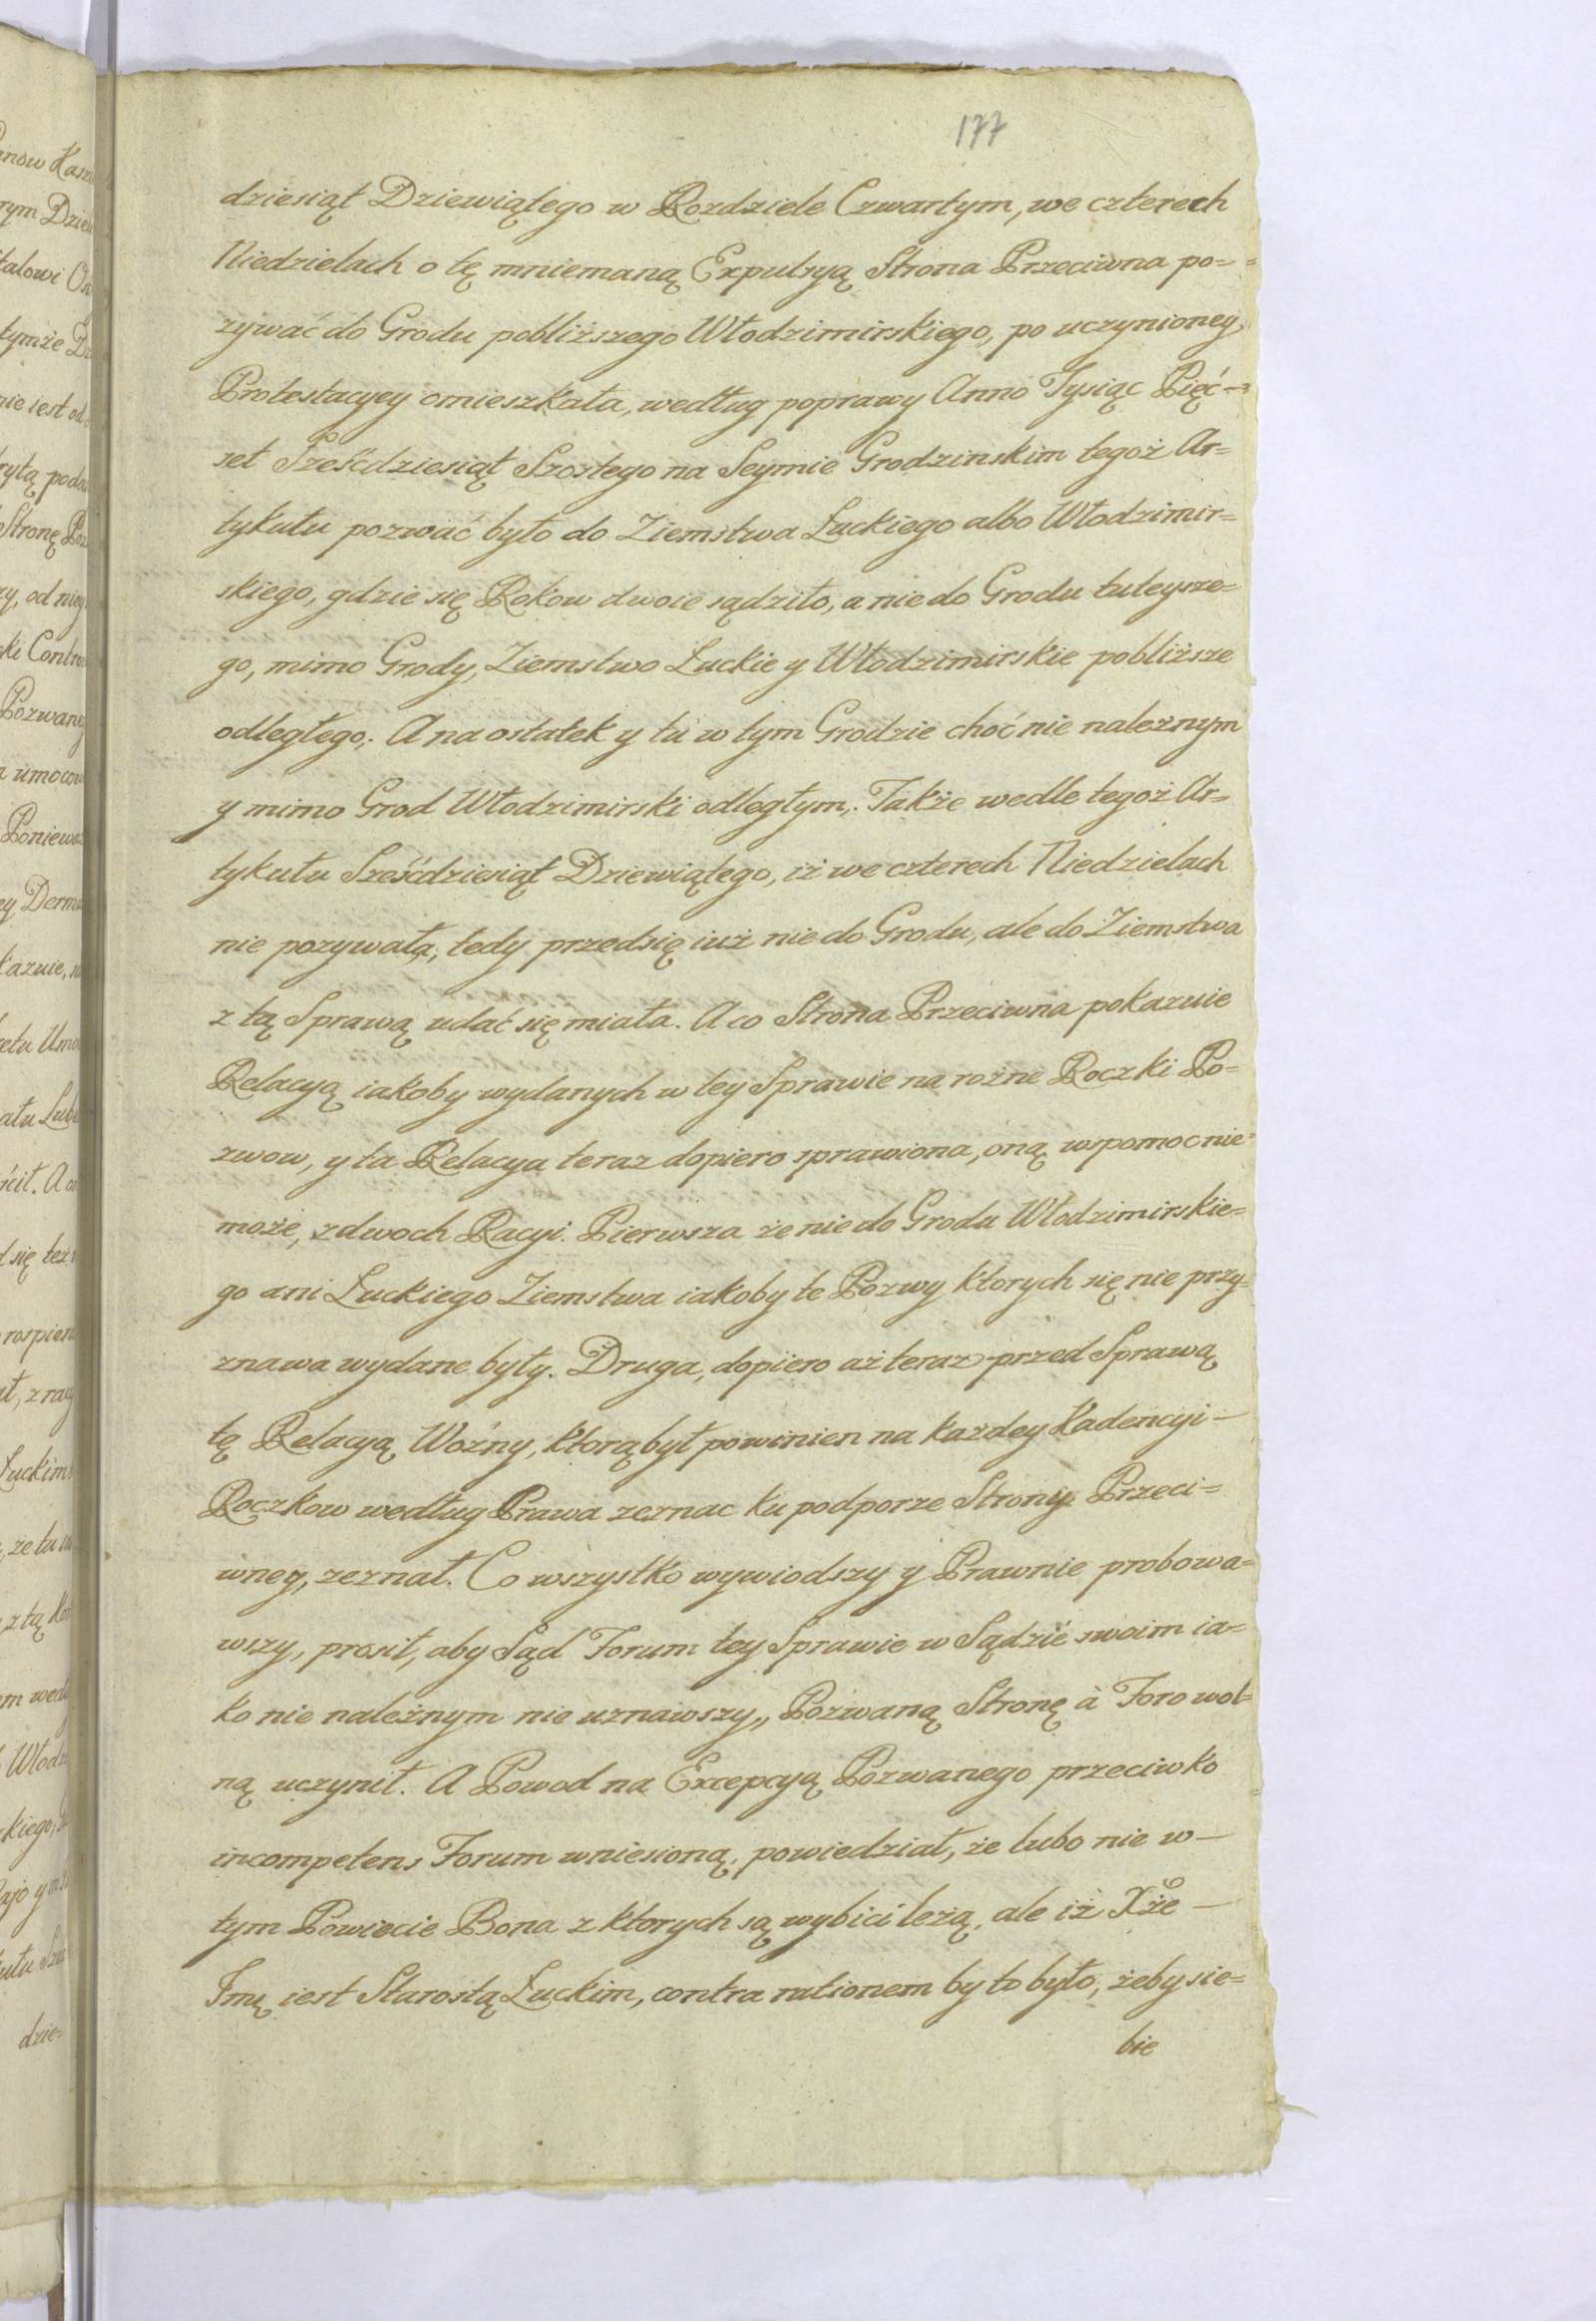 177
dziesiąt Dziewiątego w Rozdziele Czwartym, we czterech
Niedzielach o tę mniemaną Expulsyą Strona Przeciwna po=
zywać do Grodu pobliższego Włodzimirskiego, po uczynioney
Protestacyey omieszkała, według poprawy Anno Tysiąc Pięć=
set Sześćdziesiąt Szostego na Seymie Grodzinskim tegoż Ar=
tykułu pozwać było do Ziemstwa Luckiego albo Włodzimir=
skiego, gdzie się Rokow dwoie sądziło, a nie do Grodu tuteysze=
go, mimo Grody, Ziemstwo Luckie y Włodzimirskie pobliższe
odległego. A na ostatek y tu w tym Grodzie choć nie należnym
y mimo Grod Włodzimirski odległym. Także wedle tegoż Ar=
tykułu Sześćdziesiąt Dziewiątego, iż we czterech Niedzielach
nie pozywała, tedy przedsię iuż nie do Grodu, ale do Ziemstwa
z tą Sprawą udać się miała. A co Strona Przeciwna pokazuie
Relacyą iakoby wydanych w tey Sprawie na rożne Roczki Po=
zwow, y ta Relacya teraz dopiero sprawiona, oną wspomoc nie
może, z dwoch Racyi. Pierwsza że nie do Grodu Włodzimirskie=
go ani Luckiego Ziemstwa iakoby te Pozwy ktorych się nie przy=
znawa wydane były. Druga, dopiero aż teraz przed Sprawą
tę Relacyą Woźny, ktorą był powinien na każdey Kadencyi
Roczkow według Prawa zeznac ku podporze Strony Przeci=
wney, zeznał. Co wszystko wywiodszy y Prawnie probowa=
wszy, prosił, aby Sąd Forum tey Sprawie w Sądzie swoim ia=
ko nie należnym nie uznawszy, Pozwaną Stronę à Foro wol=
ną uczynił. A Powod na Excepcyą Pozwanego przeciwko
incompetens Forum wniesioną, powiedział, że lubo nie w
tym Powiecie Bona z ktorych są wybici leżą, ale iż Xże
Imę iest Starostą Luckim, contra rationem by to było, żeby sie=
bie